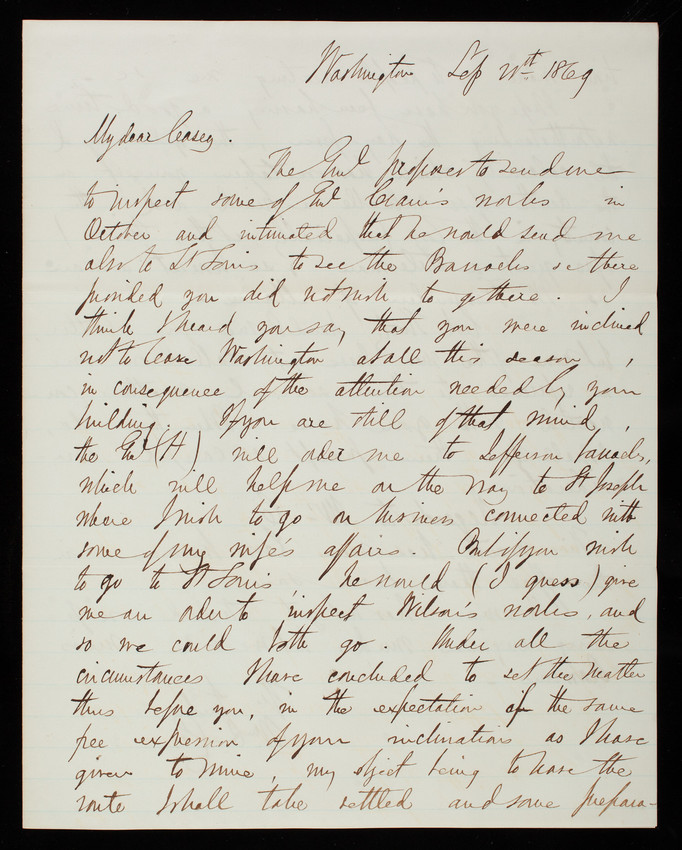 Washington Sep 20th 1869
My dear Casey.
The Genl proposes to send me
to inspect some of Genl Cram's works in
October and intimated that he would send me
also to St Louis to see the Barracks &c there
provided you did not wish to go there. I
think I heard you say that you were inclined
not to leave Washington at all this season,
in consequence of the attention needed by your
building. If you are still of that mind,
the Genl (H) will order me to Jefferson Barracks,
which will help me on the way to St Joseph
where I wish to go on business connected with
some of my wife's affairs. But if you wish
to go to St Louis he would (I guess) give
me an order to inspect Wilson's works, and
so we could both go. Under all the
circumstances I have concluded to set the matter
thus before you, in the expectation of the same
free expression of your inclinations as I have
given to mine, my object being to have the
route I shall take settled and some prepara-